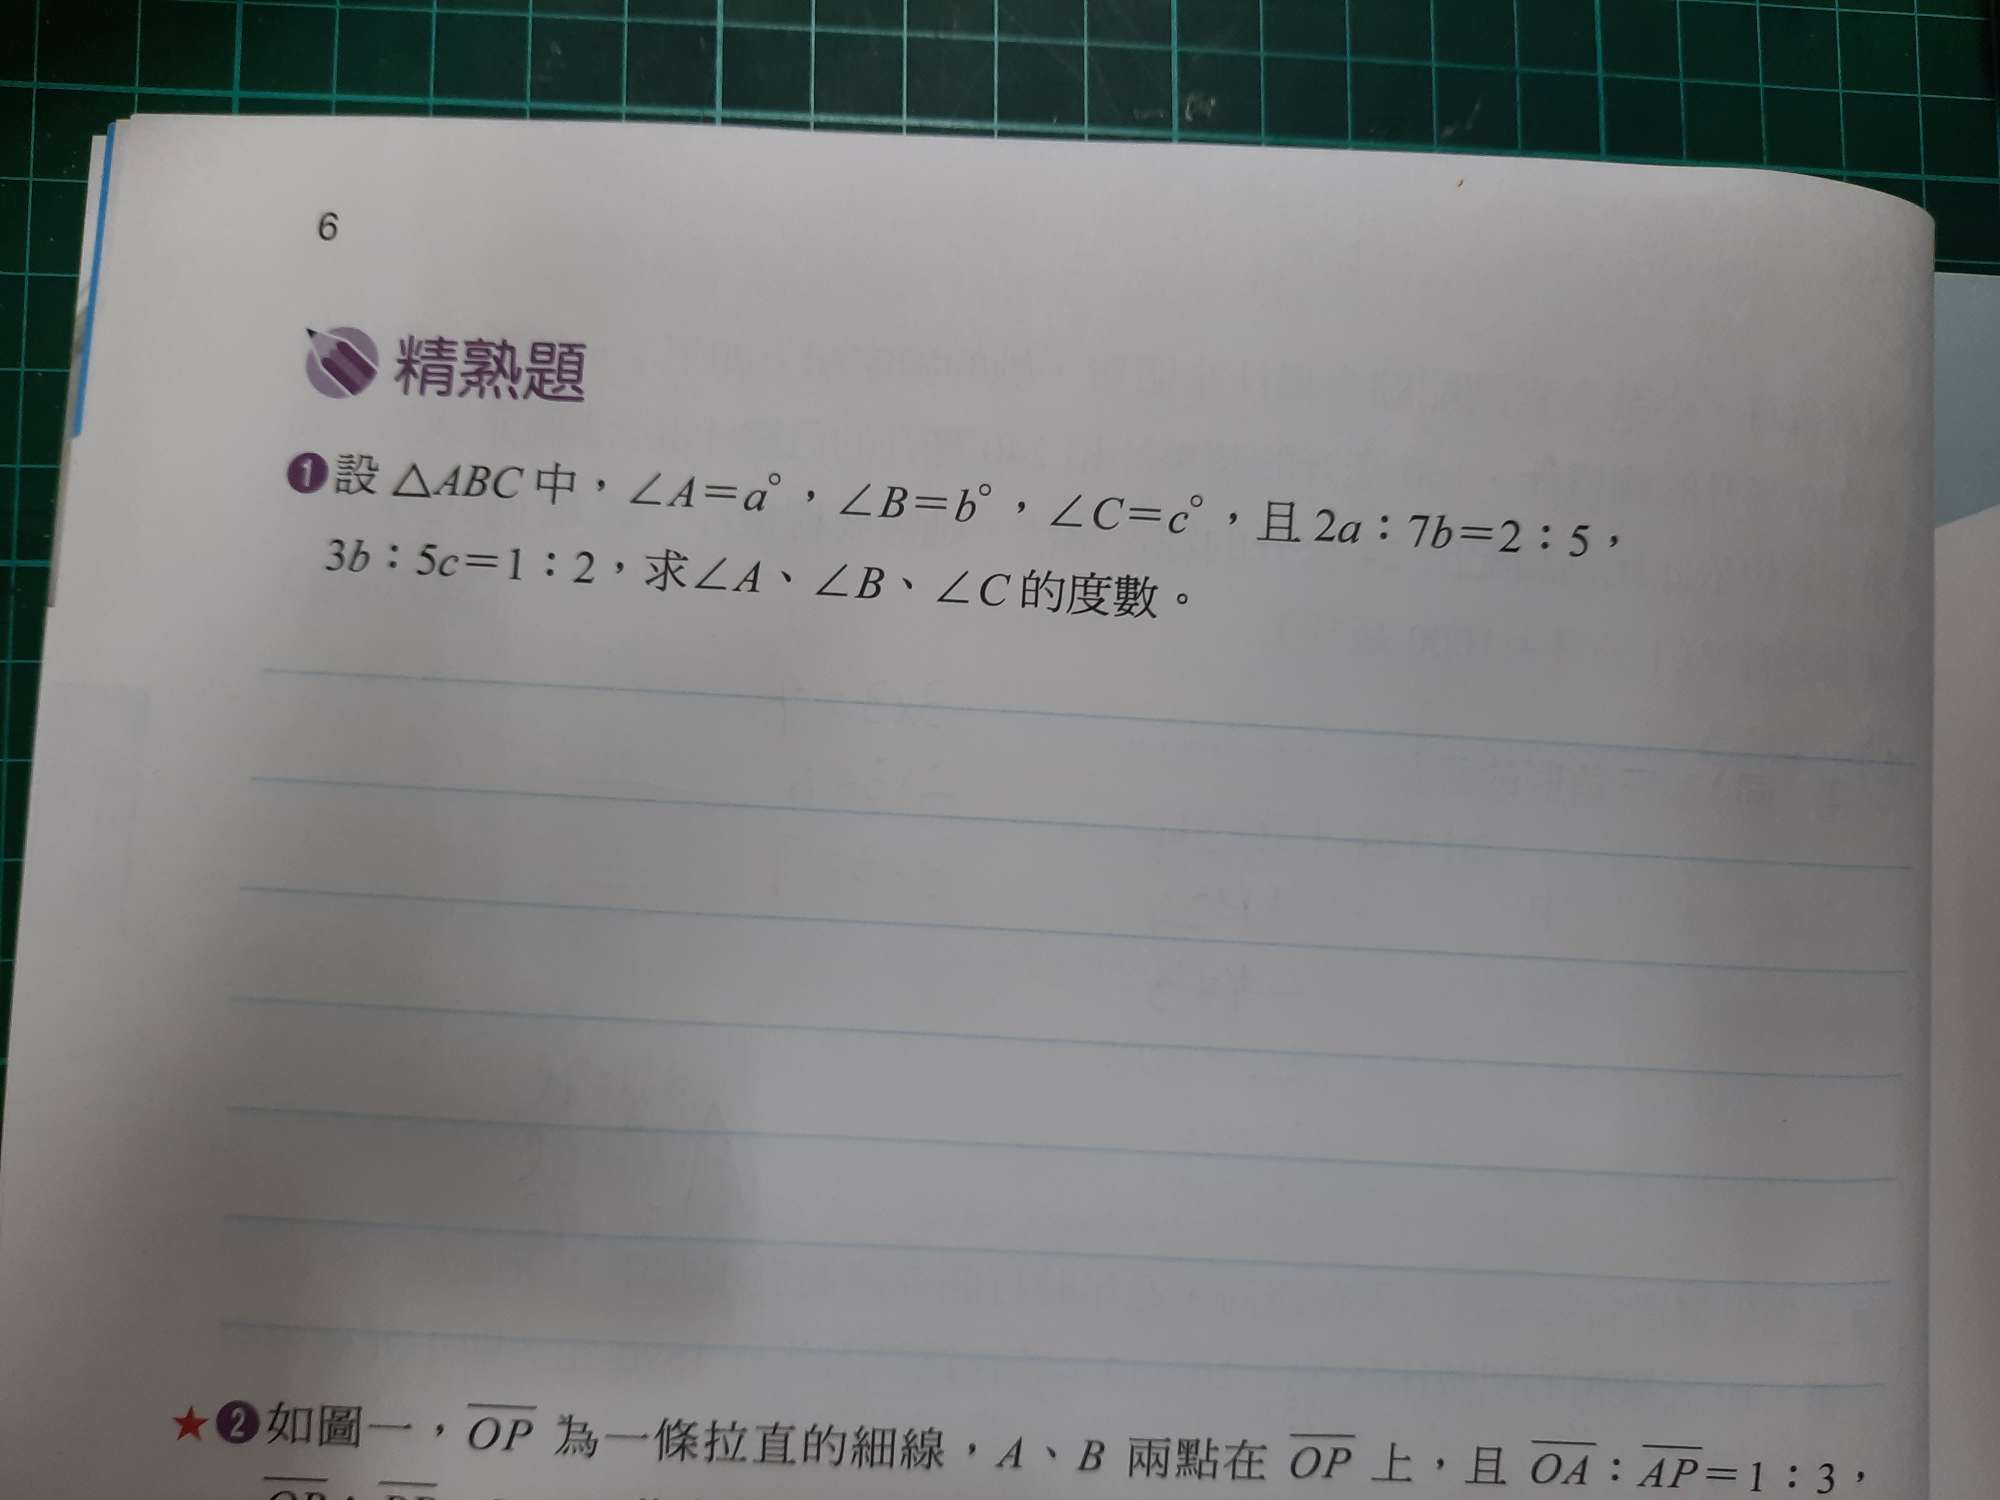 6
精熟題
❶設 △ABC 中，∠A＝a°，∠B＝b°，∠C＝c°，且 2a：7b＝2：5，
3b：5c＝1：2，求∠A、∠B、∠C 的度數。
★❷如圖一，O̅P̅ 為一條拉直的細線，A、B 兩點在 O̅P̅ 上，且 O̅A̅：A̅P̅＝1：3，